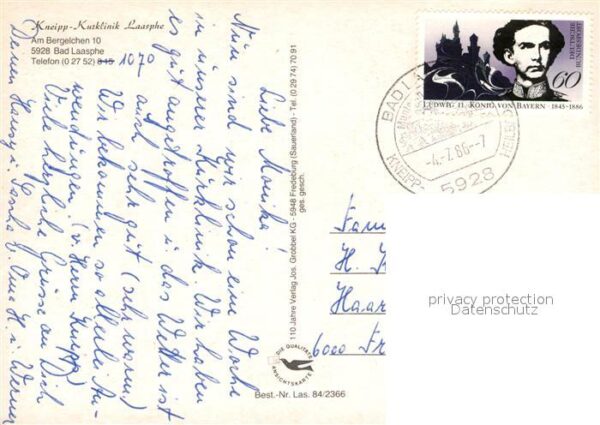 Kneipp-Kurklinik Laasphe
Am Bergelchen 10
5928 Bad Laasphe
Telefon (0 27 52) 815 1070
Liebe Monika!
Nun sind wir schon eine Woche
in unserer Kurklinik. Wir haben
es gut angetroffen u. das Wetter ist
auch sehr gut (sehr warm)
Wir bekommen so allerlei An-
wendungen (v. Herrn Kneipp)
Viele herzliche Grüsse an Dich
Deinen Hans u. Oma H. u. Werner
110 Jahre Verlag Jos. Grobbel KG - 5948 Fredeburg (Sauerland) - Tel. (0 29 74) 70 91
ges. gesch.
DIE QUALITÄTS
ANSICHTSKARTE
Best.-Nr. Las. 84/2366
DEUTSCHE
BUNDESPOST
60
LUDWIG II. KÖNIG VON BAYERN · 1845-1886
BAD
-4.-7.86--7
KNEIPP-
5928
Fam
H.
Haar
6000 Fr
privacy protection
Datenschutz